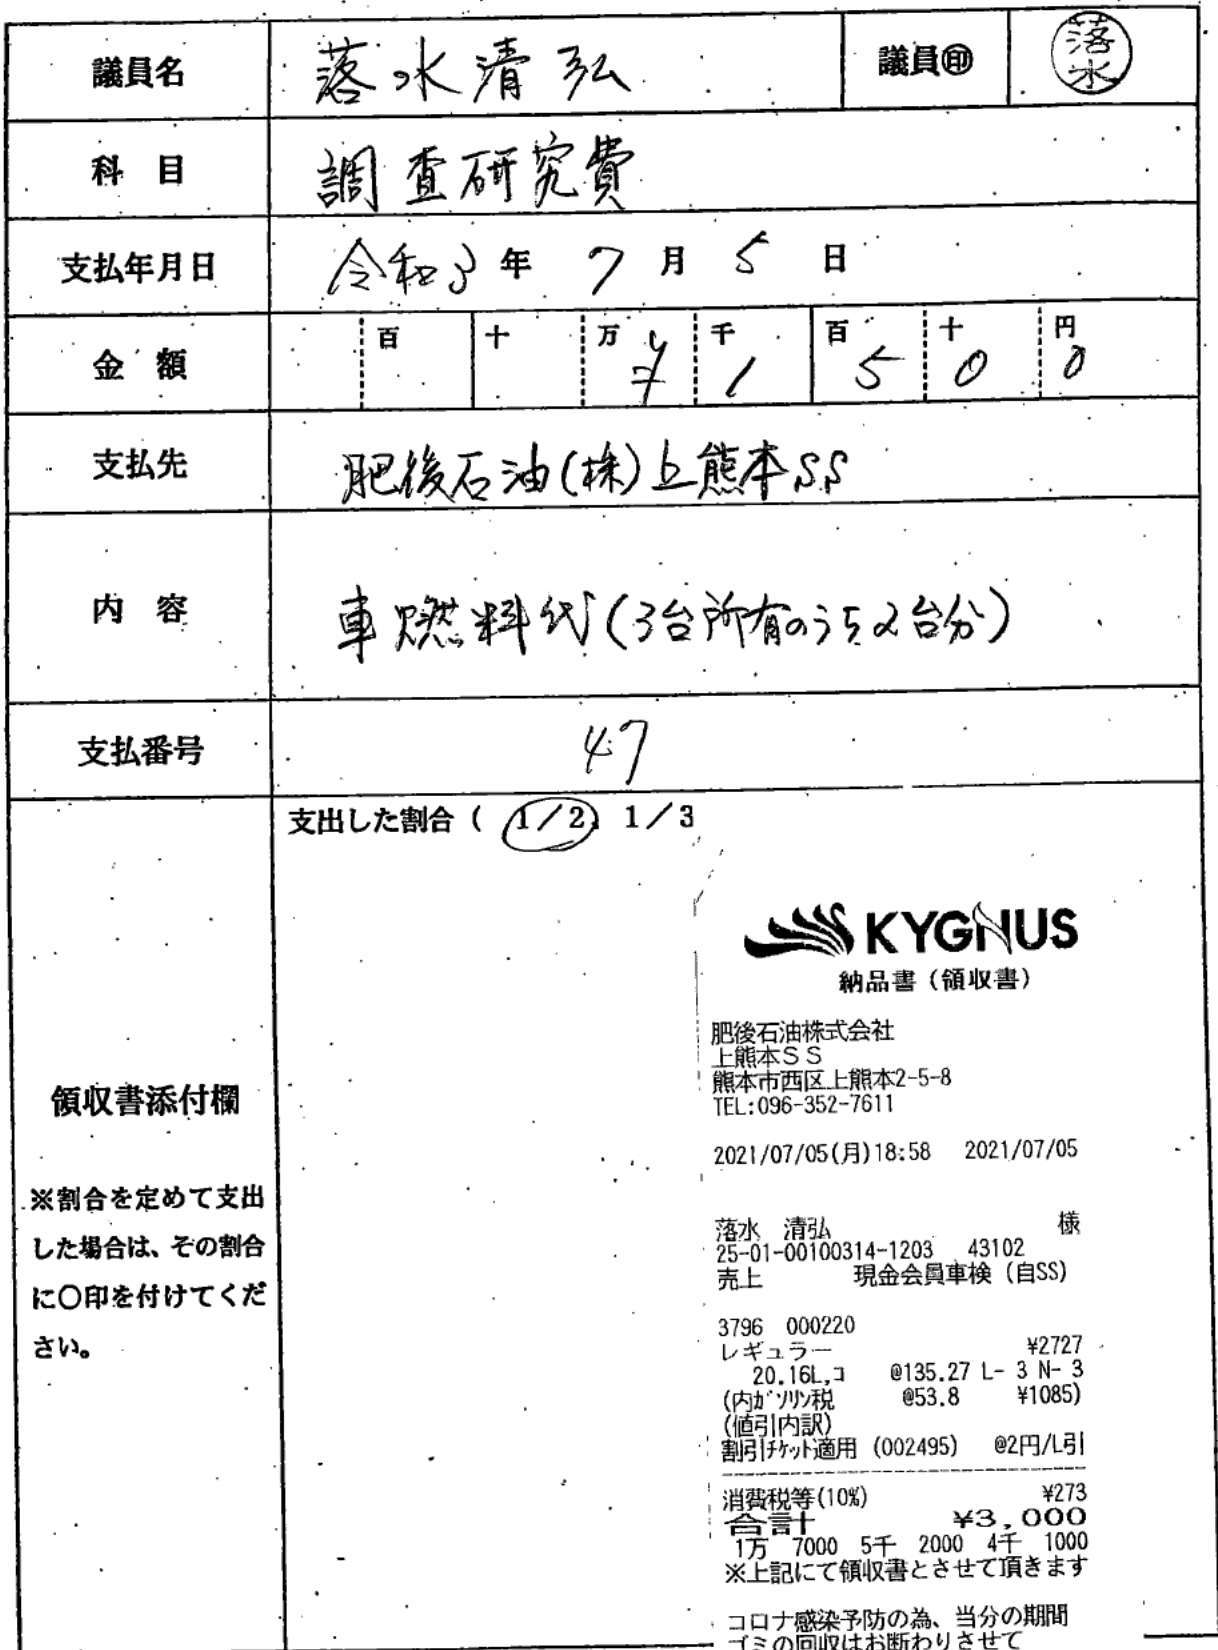 議員名 落水清弘 議員㊞ 落水
科 目 調査研究費
支払年月日 令和3年 7月 5日
金 額 百 十 万 ¥ 千 1 百 5 十 0 円 0
支払先 肥後石油(株)上熊本SS
内 容 車燃料代(3台所有のうち2台分)
支払番号 47
支出した割合 ( 1/2、 1/3
領収書添付欄
※割合を定めて支出
した場合は、その割合
に〇印を付けてくだ
さい。
KYGNUS
納品書(領収書)
肥後石油株式会社
上熊本SS
熊本市西区上熊本2-5-8
TEL:096-352-7611
2021/07/05(月)18:58 2021/07/05
落水 清弘 様
25-01-00100314-1203 43102
売上 現金会員車検(自SS)
3796 000220
レギュラー ¥2727
20.16L,コ @135.27 L- 3 N- 3
(内ガソリン税 @53.8 ¥1085)
(値引内訳)
割引チケット適用 (002495) @2円/L引
消費税等(10%) ¥273
合計 ¥3,000
1万 7000 5千 2000 4千 1000
※上記にて領収書とさせて頂きます
コロナ感染予防の為、当分の期間
ゴミの回収はお断わりさせて